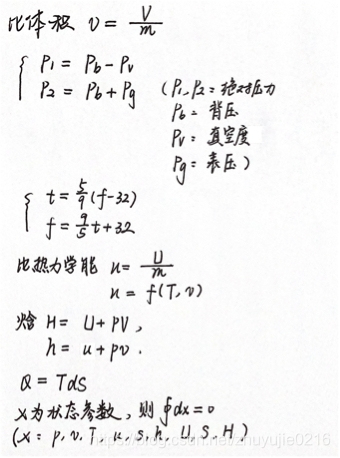 比体积 v = V/m
{ P₁ = Pb - Pv
P₂ = Pb + Pg (P₁, P₂: 绝对压力
Pb: 背压
Pv: 真空度
Pg: 表压)
{ t = 5/9 (f-32)
f = 9/5 t + 32
比热力学能 u = U/m
u = f(T, v)
焓 H = U + PV,
h = u + pv.
Q = Tds
X为状态参数, 则 ∮dx = 0
(X: p, v, T, u, s, h, U, S, H)